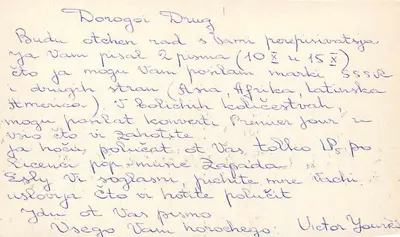 Dorogoi Drug!
Budu otchen rad s Vami perepisivatsya
ja Vam pisal 2 pisma (10 X i 15 X)
čto ja mogu Vam posilam marki SSSR
i drugih stran (Asia, Afrika, Latinska
America). v bolichih količestvah,
mogu posilat konverti Premier Jour i
vsio čto vi zahotite.
ja hoču polučat ot Vas tolko LP, po
Licenčii pop-music Zapada.
Esly Vi soglasni, pichite mne Vachi
uslovja čto vi hotite polučit
Jdu ot Vas pismo
Vsego Vam horochego: Victor